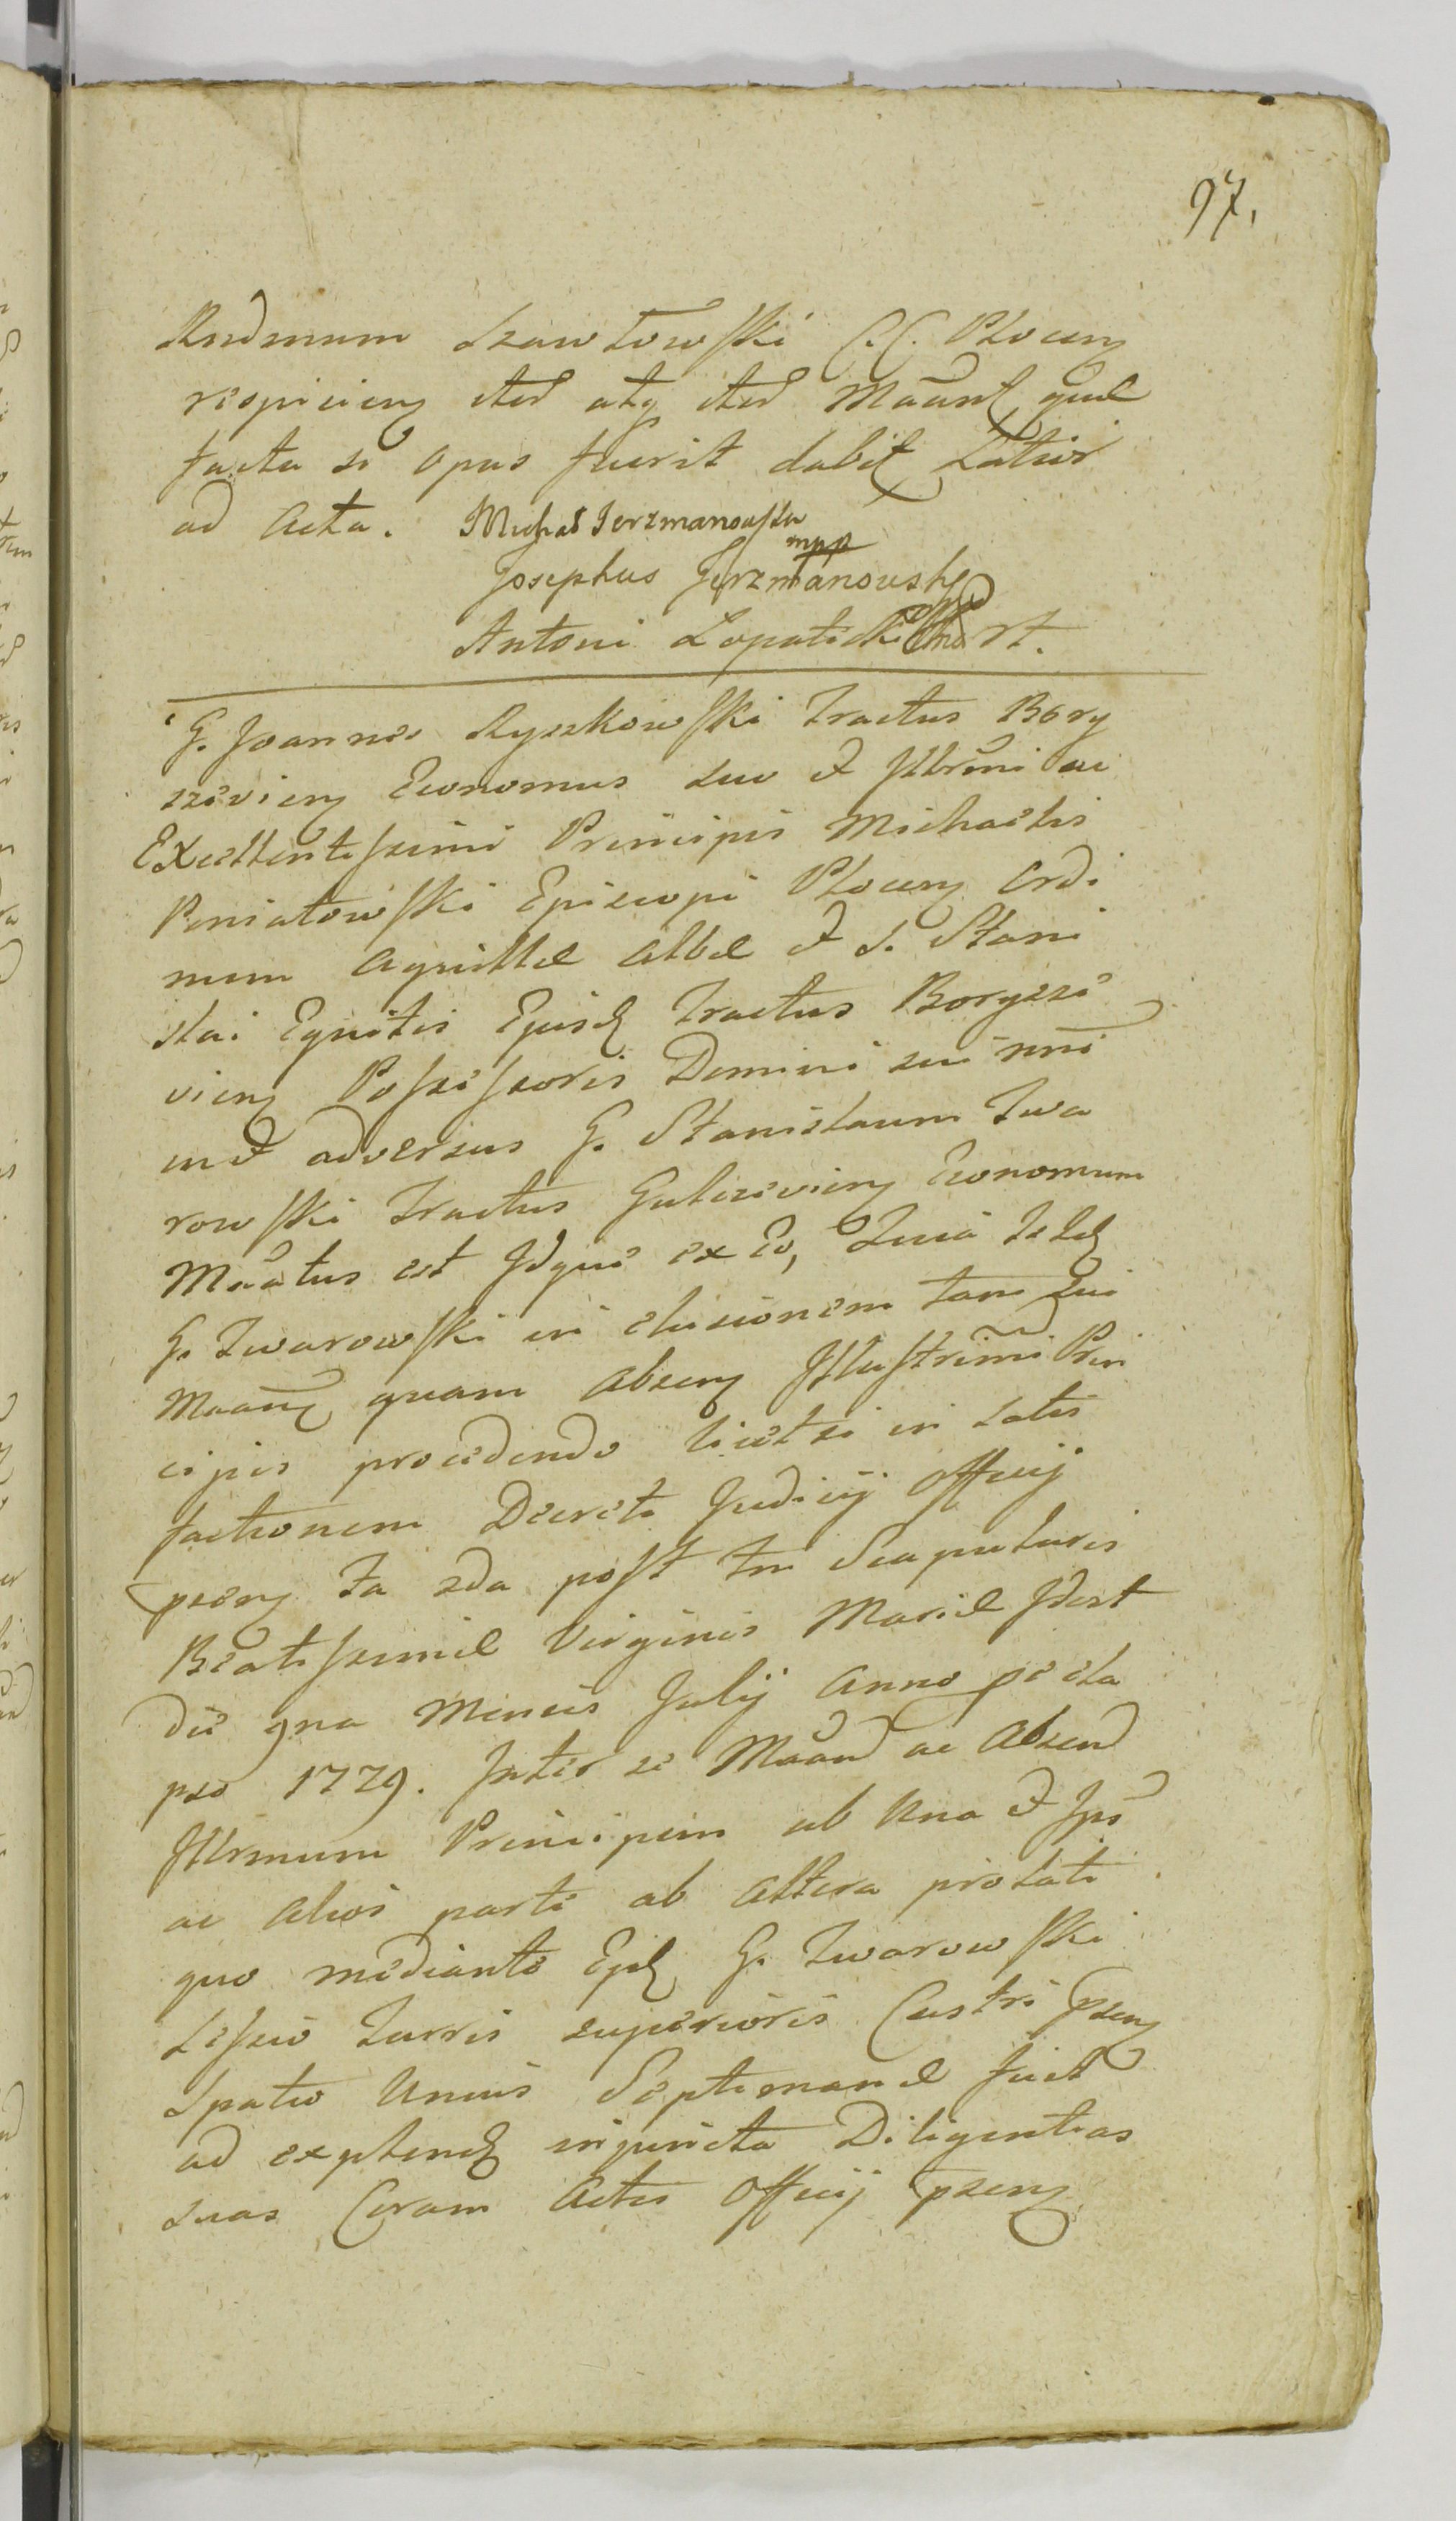 97.
Rndmum Szawłowski C. C. Plocen
respicien sted atq sted Maant, quæ
facta si opus fuerit dabit Latius
ad Acta. Michał Jerzmanowski
mpp
Josephus Jerzmanowski
Antoni Łopatecki
G. Joannes Ryszkowski Tractus Bory
szevien Economus suo et Illrmi ac
Excellentissimi Principis Michaelis
Poniatowski Episcopi Plocen Ordi
num Aquillæ Albæ et S. Stani
slai Equitis Ejusd Tractus Borysze
vien Possessoris Domini sui nni
met adversus G. Stanislaum Twa
rowski Tractus Gulczevien Economum
Maatus est Idque ex Eo, Quia Isd
G. Twarowski in elusionem tam sui
Maant quam Absen Illustrmi Prin
cipis procedendo licet si in Satis
factionem Decreti Judicij Officij
psen Fa 2da post Fm Scapularis
Beatissimæ Virginis Mariæ Idest
die 9na Mensis Julij Anno
pso 1779. Inter se Maand ac Absend
Illrmum Principem ab Una et Ips
ac alios parte ab Altera prolati
quo mediante Ejd G. Twarowski
Sessio Turris superioris Castri psen
Spatio Unius Septimanæ fuit
ad explend injuncta Diligentias
suas Coram Actis Officij psen